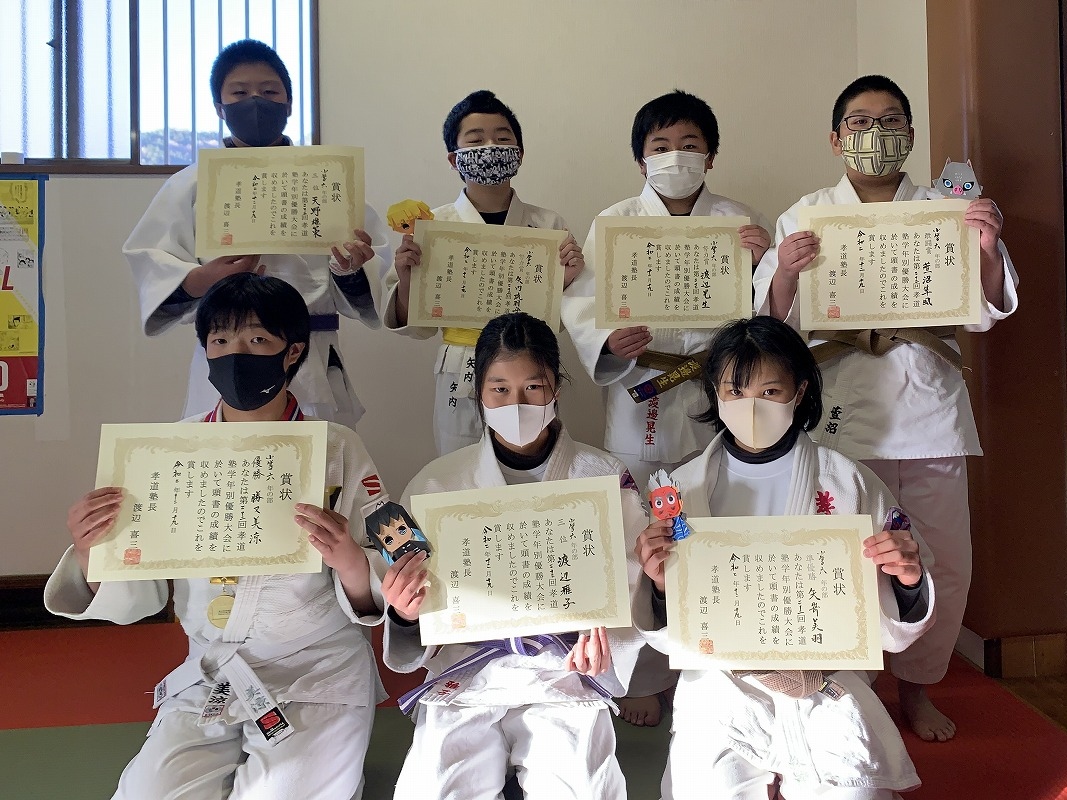 賞状
小学六 年の部
三位 天野雄策
あなたは第二十三回孝道
塾学年別優勝大会に
於いて頭書の成績を
収めましたのでこれを
賞します
孝道塾長
渡辺 喜三
賞状
小学六 年の部
あなたは第二十三回孝道
塾学年別優勝大会に
於いて頭書の成績を
収めましたのでこれを
賞します
孝道塾長
渡辺 喜三
矢内
矢内
賞状
小学六 年の部
努力賞 渡辺晃生
あなたは第二十三回孝道
塾学年別優勝大会に
於いて頭書の成績を
収めましたのでこれを
賞します
孝道塾長
渡辺 喜三
渡邉晃生
渡邉晃生
賞状
小学六 年の部
敢闘賞
あなたは第二十三回孝道
塾学年別優勝大会に
於いて頭書の成績を
収めましたのでこれを
賞します
令和二年十二月十九日
孝道塾長
渡辺 喜三
萱沼
賞状
小学六 年の部
優勝 勝又美涼
あなたは第二十三回孝道
塾学年別優勝大会に
於いて頭書の成績を
収めましたのでこれを
賞します
令和二年十二月十九日
孝道塾長
渡辺 喜三
美涼
賞状
小学六 年の部
三位 渡辺雅子
あなたは第二十三回孝道
塾学年別優勝大会に
於いて頭書の成績を
収めましたのでこれを
賞します
令和二年十二月十九日
孝道塾長
渡辺 喜三
賞状
小学六 年の部
準優勝 矢嵜美羽
あなたは第二十三回孝道
塾学年別優勝大会に
於いて頭書の成績を
収めましたのでこれを
賞します
令和二年十二月十九日
孝道塾長
渡辺 喜三